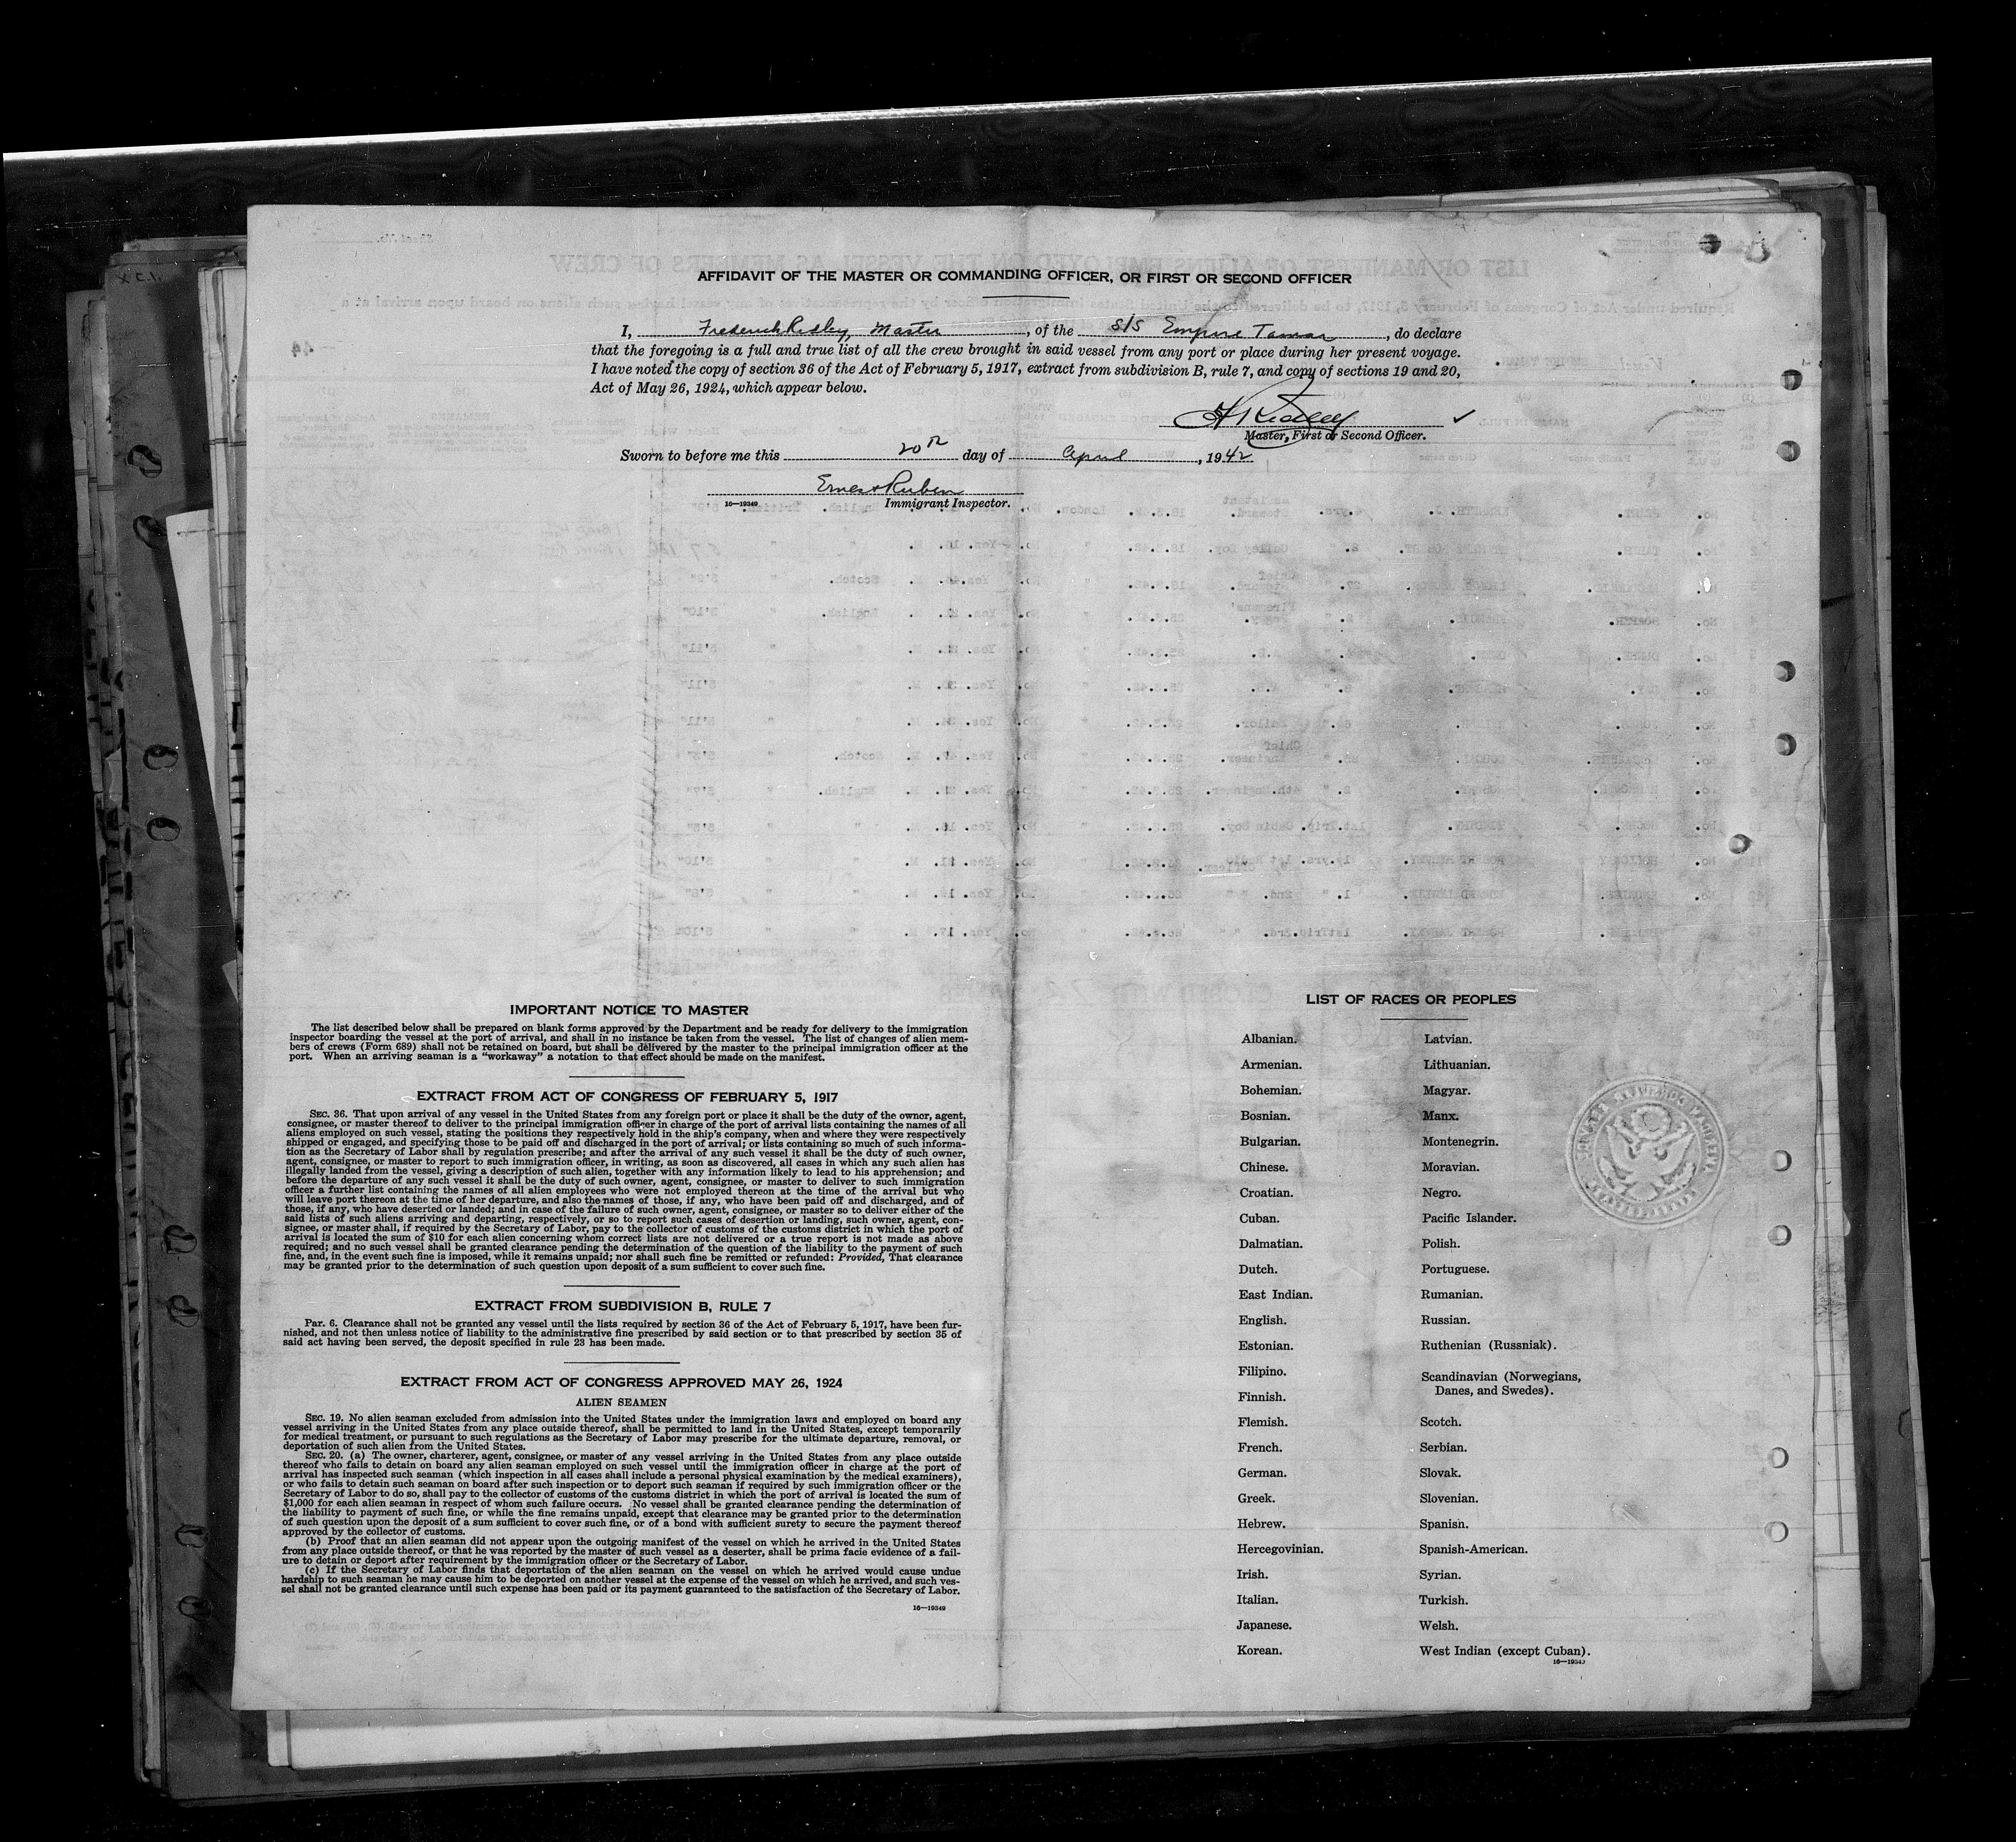 AFFIDAVIT OF THE MASTER OR COMMANDING OFFICER, OR FIRST OR SECOND OFFICER
I, Frederick Ridley, Master, of the S/S Empire Tamar, do declare
that the foregoing is a full and true list of all the crew brought in said vessel from any port or place during her present voyage.
I have noted the copy of section 36 of the Act of February 5, 1917, extract from subdivision B, rule 7, and copy of sections 19 and 20,
Act of May 26, 1924, which appear below.
Master, First or Second Officer.
Sworn to before me this 20th day of April, 1942
Ernest Ruben
16—19349 Immigrant Inspector.
IMPORTANT NOTICE TO MASTER
The list described below shall be prepared on blank forms approved by the Department and be ready for delivery to the immigration
inspector boarding the vessel at the port of arrival, and shall in no instance be taken from the vessel. The list of changes of alien mem-
bers of crews (Form 689) shall not be retained on board, but shall be delivered by the master to the principal immigration officer at the
port. When an arriving seaman is a "workaway" a notation to that effect should be made on the manifest.
EXTRACT FROM ACT OF CONGRESS OF FEBRUARY 5, 1917
SEC. 36. That upon arrival of any vessel in the United States from any foreign port or place it shall be the duty of the owner, agent,
consignee, or master thereof to deliver to the principal immigration officer in charge of the port of arrival lists containing the names of all
aliens employed on such vessel, stating the positions they respectively hold in the ship's company, when and where they were respectively
shipped or engaged, and specifying those to be paid off and discharged in the port of arrival; or lists containing so much of such informa-
tion as the Secretary of Labor shall by regulation prescribe; and after the arrival of any such vessel it shall be the duty of such owner,
agent, consignee, or master to report to such immigration officer, in writing, as soon as discovered, all cases in which any such alien has
illegally landed from the vessel, giving a description of such alien, together with any information likely to lead to his apprehension; and
before the departure of any such vessel it shall be the duty of such owner, agent, consignee, or master to deliver to such immigration
officer a further list containing the names of all alien employees who were not employed thereon at the time of the arrival but who
will leave port thereon at the time of her departure, and also the names of those, if any, who have been paid off and discharged, and of
those, if any, who have deserted or landed; and in case of the failure of such owner, agent, consignee, or master so to deliver either of the
said lists of such aliens arriving and departing, respectively, or so to report such cases of desertion or landing, such owner, agent, con-
signee, or master shall, if required by the Secretary of Labor, pay to the collector of customs of the customs district in which the port of
arrival is located the sum of $10 for each alien concerning whom correct lists are not delivered or a true report is not made as above
required; and no such vessel shall be granted clearance pending the determination of the question of the liability to the payment of such
fine, and, in the event such fine is imposed, while it remains unpaid; nor shall such fine be remitted or refunded: Provided, That clearance
may be granted prior to the determination of such question upon deposit of a sum sufficient to cover such fine.
EXTRACT FROM SUBDIVISION B, RULE 7
Par. 6. Clearance shall not be granted any vessel until the lists required by section 36 of the Act of February 5, 1917, have been fur-
nished, and not then unless notice of liability to the administrative fine prescribed by said section or to that prescribed by section 35 of
said act having been served, the deposit specified in rule 23 has been made.
EXTRACT FROM ACT OF CONGRESS APPROVED MAY 26, 1924
ALIEN SEAMEN
SEC. 19. No alien seaman excluded from admission into the United States under the immigration laws and employed on board any
vessel arriving in the United States from any place outside thereof, shall be permitted to land in the United States, except temporarily
for medical treatment, or pursuant to such regulations as the Secretary of Labor may prescribe for the ultimate departure, removal, or
deportation of such alien from the United States.
SEC. 20. (a) The owner, charterer, agent, consignee, or master of any vessel arriving in the United States from any place outside
thereof who fails to detain on board any alien seaman employed on such vessel until the immigration officer in charge at the port of
arrival has inspected such seaman (which inspection in all cases shall include a personal physical examination by the medical examiners),
or who fails to detain such seaman on board after such inspection or to deport such seaman if required by such immigration officer or the
Secretary of Labor to do so, shall pay to the collector of customs of the customs district in which the port of arrival is located the sum of
$1,000 for each alien seaman in respect of whom such failure occurs. No vessel shall be granted clearance pending the determination of
the liability to payment of such fine, or while the fine remains unpaid, except that clearance may be granted prior to the determination
of such question upon the deposit of a sum sufficient to cover such fine, or of a bond with sufficient surety to secure the payment thereof
approved by the collector of customs.
(b) Proof that an alien seaman did not appear upon the outgoing manifest of the vessel on which he arrived in the United States
from any place outside thereof, or that he was reported by the master of such vessel as a deserter, shall be prima facie evidence of a fail-
ure to detain or deport after requirement by the immigration officer or the Secretary of Labor.
(c) If the Secretary of Labor finds that deportation of the alien seaman on the vessel on which he arrived would cause undue
hardship to such seaman he may cause him to be deported on another vessel at the expense of the vessel on which he arrived, and such ves-
sel shall not be granted clearance until such expense has been paid or its payment guaranteed to the satisfaction of the Secretary of Labor.
16—19349
LIST OF RACES OR PEOPLES
Albanian.
Armenian.
Bohemian.
Bosnian.
Bulgarian.
Chinese.
Croatian.
Cuban.
Dalmatian.
Dutch.
East Indian.
English.
Estonian.
Filipino.
Finnish.
Flemish.
French.
German.
Greek.
Hebrew.
Hercegovinian.
Irish.
Italian.
Japanese.
Korean.
Latvian.
Lithuanian.
Magyar.
Manx.
Montenegrin.
Moravian.
Negro.
Pacific Islander.
Polish.
Portuguese.
Rumanian.
Russian.
Ruthenian (Russniak).
Scandinavian (Norwegians,
Danes, and Swedes).
Scotch.
Serbian.
Slovak.
Slovenian.
Spanish.
Spanish-American.
Syrian.
Turkish.
Welsh.
West Indian (except Cuban).
16—19349